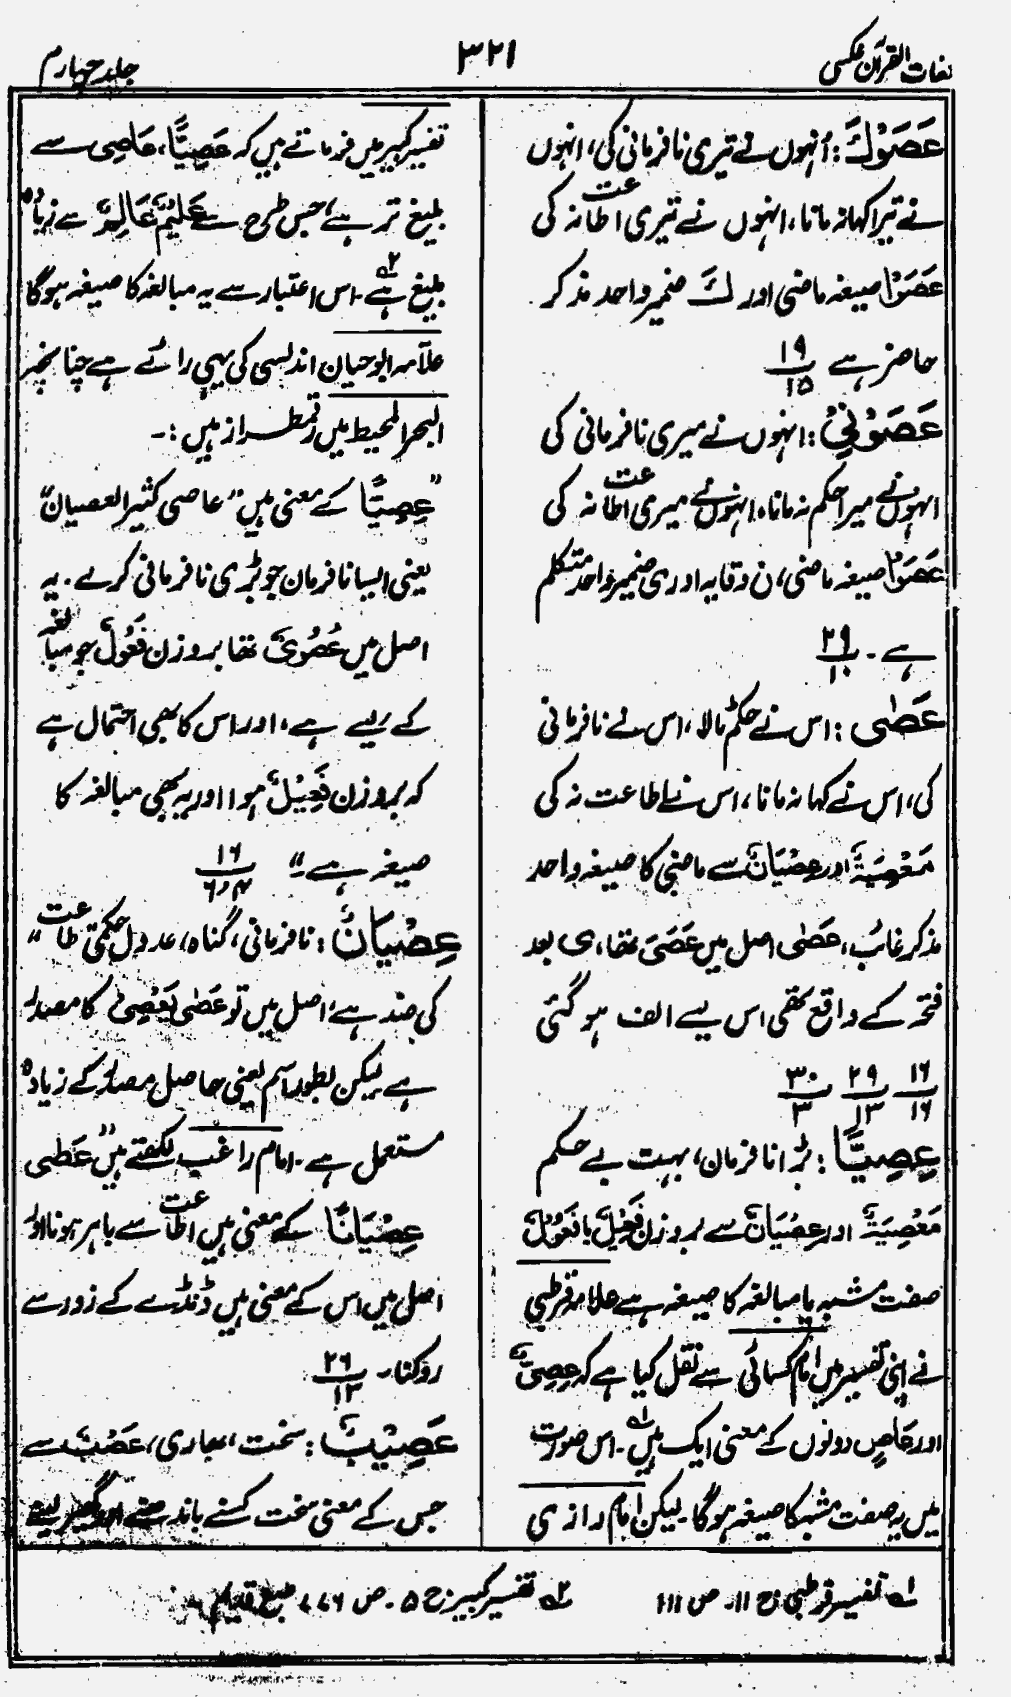 لغات القرآن عکسی
۳۲۱
جلد چہارم
عَصَوْكَ : اُنہوں نے تیری نافرمانی کی، انہوں
نے تیرا کہا نہ مانا، انہوں نے تیری اطاعت نہ کی
عَصَوْا صیغہ ماضی اور لَکَ ضمیر واحد مذکر
حاضر ہے ۱۹/۱۵
عَصَوْنِيْ : انہوں نے میری نافرمانی کی
انہوں نے میرا حکم نہ مانا، انہوں نے میری اطاعت نہ کی
عَصَوْا صیغہ ماضی، ن وقایہ اور ی ضمیر واحد متکلم
ہے ۔ ۲۹/۱۰
عَصٰى : اس نے حکم ٹالا، اس نے نافرمانی
کی، اس نے کہا نہ مانا، اس نے اطاعت نہ کی
مَعْصِيَةٌ اور عِصْيَانٌ سے ماضی کا صیغہ واحد
مذکر غائب، عَصٰى اصل میں عَصَيَ تھا، ی بعد
فتحہ کے واقع تھی اس لیے الف ہو گئی
۱۶/۱۶ ۲۹/۱۳ ۳۰/۳
عِصِيًّا : بڑا نافرمان، بہت بے حکم
مَعْصِيَةٌ اور عِصْيَانٌ سے بروزن فَعِيْلٌ یا فَعُوْلٌ
صفت مشبہ یا مبالغہ کا صیغہ ہے علامہ قرطبی
نے اپنی تفسیر میں امام کسائی سے نقل کیا ہے کہ عِصِيٌّ
اور عَاصٍ دونوں کے معنی ایک ہیں ۱؎ ۔ اس صورت
میں یہ صفت مشبہ کا صیغہ ہوگا ۔ لیکن امام رازی
تفسیر کبیر میں فرماتے ہیں کہ عَصِيًّا، عَاصِی سے
بلیغ تر ہے، جس طرح سے عَلِيْمٌ عَالِمٌ سے زیادہ
بلیغ ہے ۲؎ ۔ اس اعتبار سے یہ مبالغہ کا صیغہ ہوگا
علامہ ابو حیان اندلسی کی یہی رائے ہے چنانچہ
البحر المحیط میں رقمطراز ہیں :۔
”عِصِيًّا کے معنی ہیں ” عاصی کثیر العصیان“
یعنی ایسا نافرمان جو بڑی نافرمانی کرے ۔ یہ
اصل میں عُصُوْیٌ تھا بروزن فَعُوْلٌ جو مبالغہ
کے لیے ہے، اور اس کا بھی احتمال ہے
کہ بروزن فَعِيْلٌ ہو اور یہ بھی مبالغہ کا
صیغہ ہے ۔“ ۱۶/۶،۴
عِصْيَانٌ : نافرمانی، گناہ، عدول حکمی طاعت
کی ضد ہے، اصل میں تو عَصٰى يَعْصِىْ کا مصدر
ہے لیکن بطور اسم یعنی حاصل مصدر کے زیادہ
مستعمل ہے ۔ امام راغب لکھتے ہیں” عَصٰى
عِصْيَانًا کے معنی ہیں اطاعت سے باہر ہونا اور
اصل میں اس کے معنی ہیں ڈنڈے کے زور سے
روکنا ۔ ۲۶/۱۳
عَصِيْبٌ : سخت، بھاری، عَصْبٌ سے
جس کے معنی سخت کسنے باندھنے اور گھیر لینے
۱؎ تفسیر قرطبی ج ۱۱ ۔ ص ۱۱۱
۲؎ تفسیر کبیر ج ۵ ۔ ص ۷۷۶ طبع قدیم